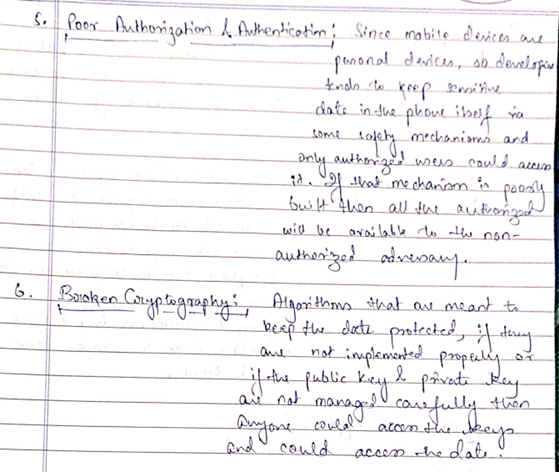 5. Poor Authorization & Authentication: Since mobile devices are
personal devices, so developer
tends to keep sensitive
date in the phone itself via
some safety mechanisms and
only authorized users could access
it. If that mechanism is poorly
built then all the authorized
will be available to the non-
authorized adversary.
6. Broken Cryptography: Algorithms that are meant to
keep the date protected, if they
are not implemented properly or
if the public key & private key
are not managed carefully then
anyone could access the keys
and could access the date.